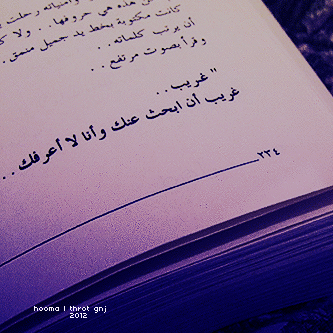 هذه هي حروفها.. ولا
كانت مكتوبة بخط يد جميل منمق.
أن يرتب كلماته..
وقرأ بصوت مرتفع..
"غريب..
غريب أن ابحث عنك وأنا لا أعرفك..
٢٣٤
hooma | throt gnj
2012